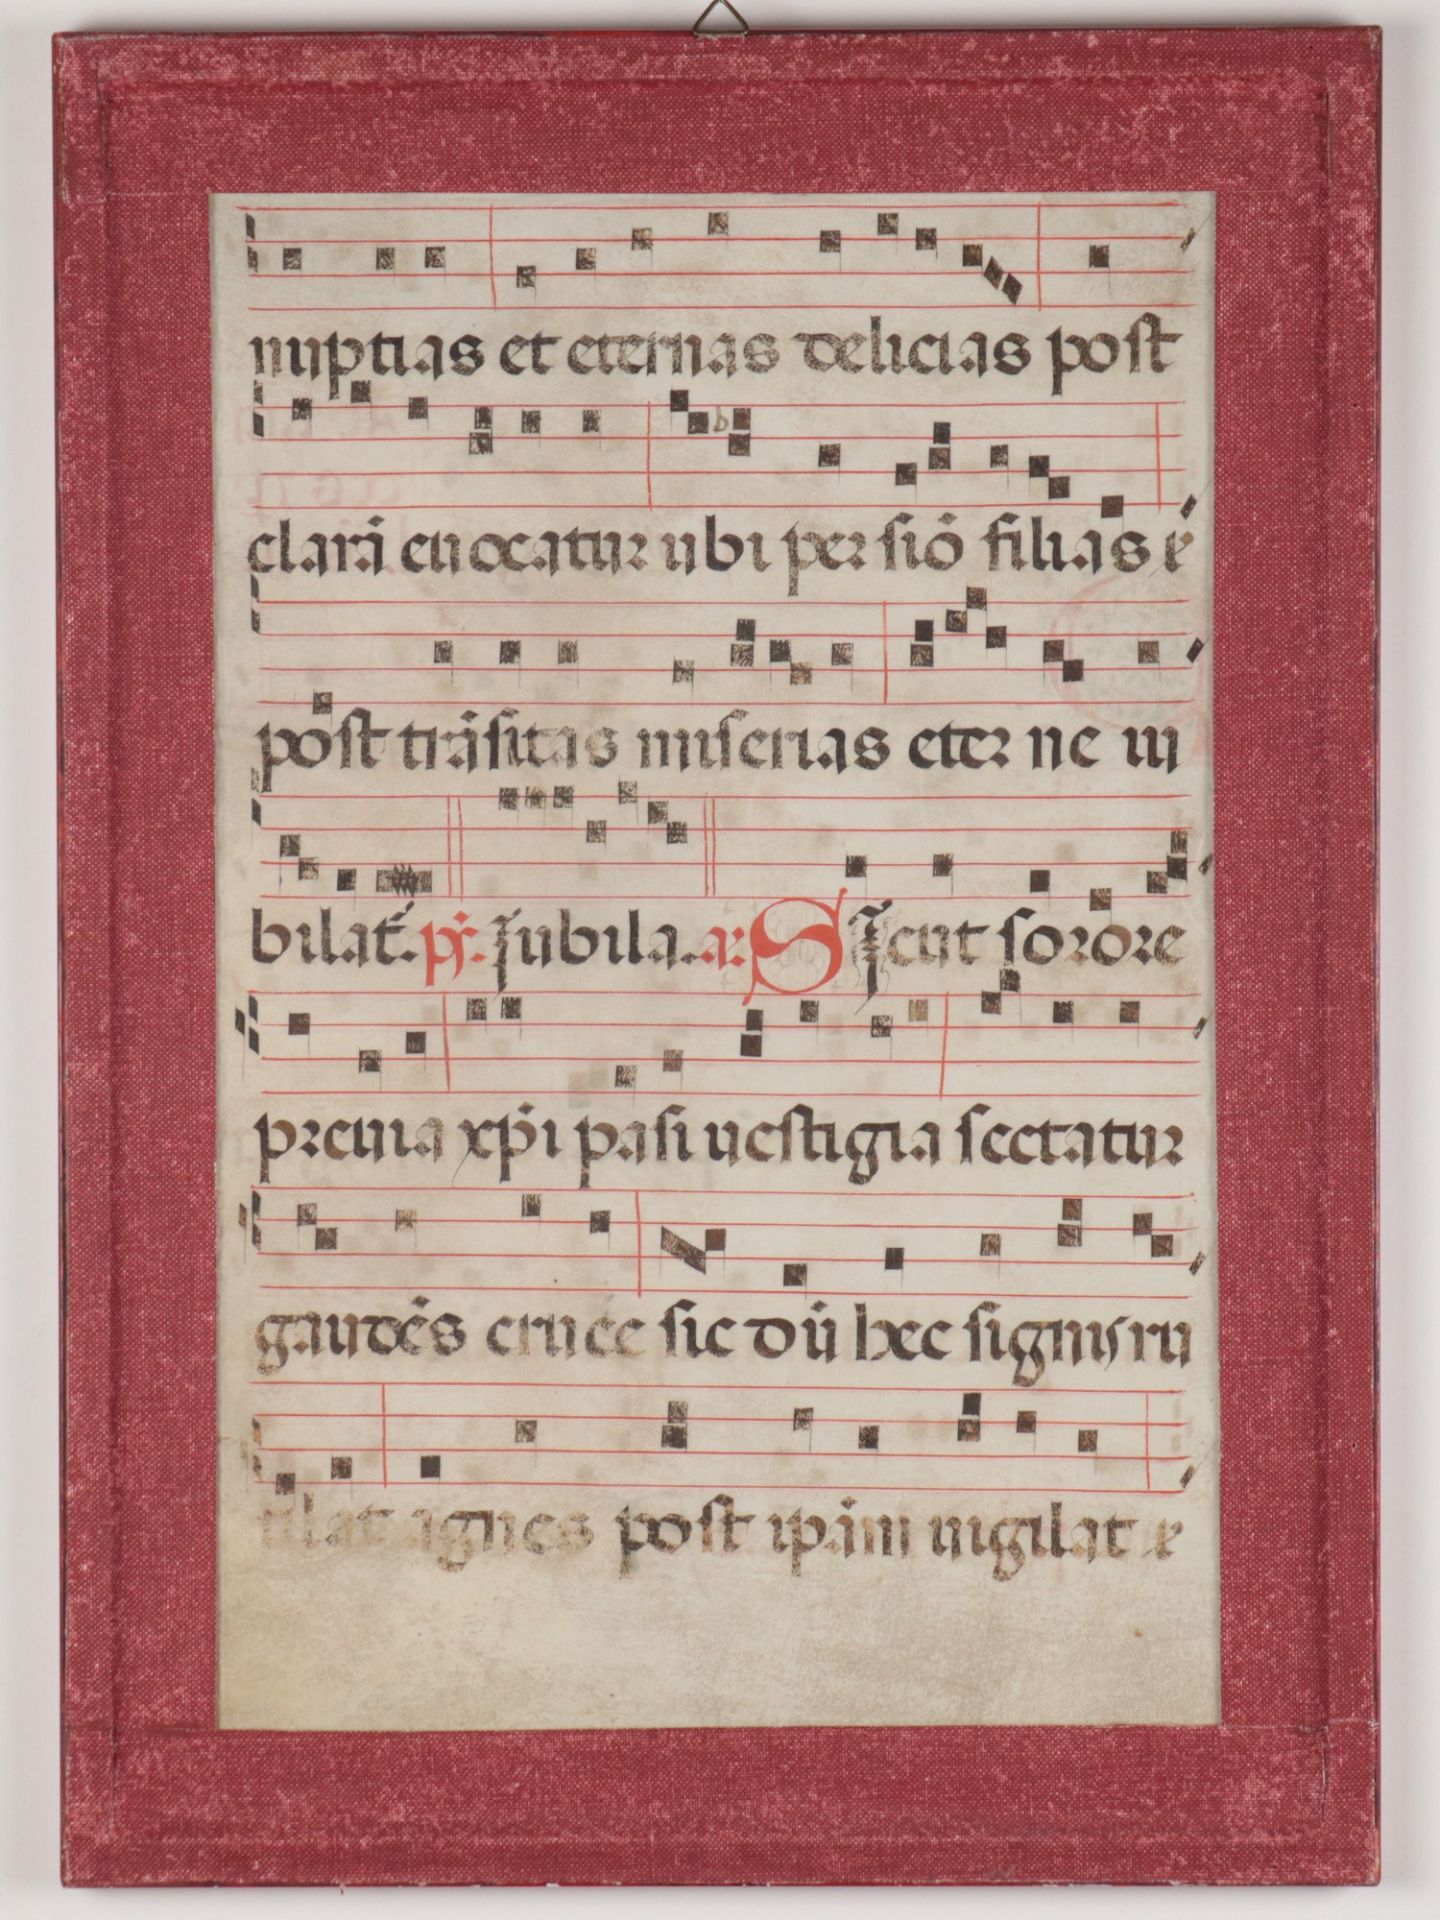 nuptias et eternas delicias post
clarā euocatur ubi per siō filias é
post trāsitas miserias eter ne iu
bilat. pš. Iubila. a. Sicut sorore
preuia xp̄i pasi uestigia sectatur
gaudēs cruce sic dū hec signis ru
tilat agnes post ipām uigilat e